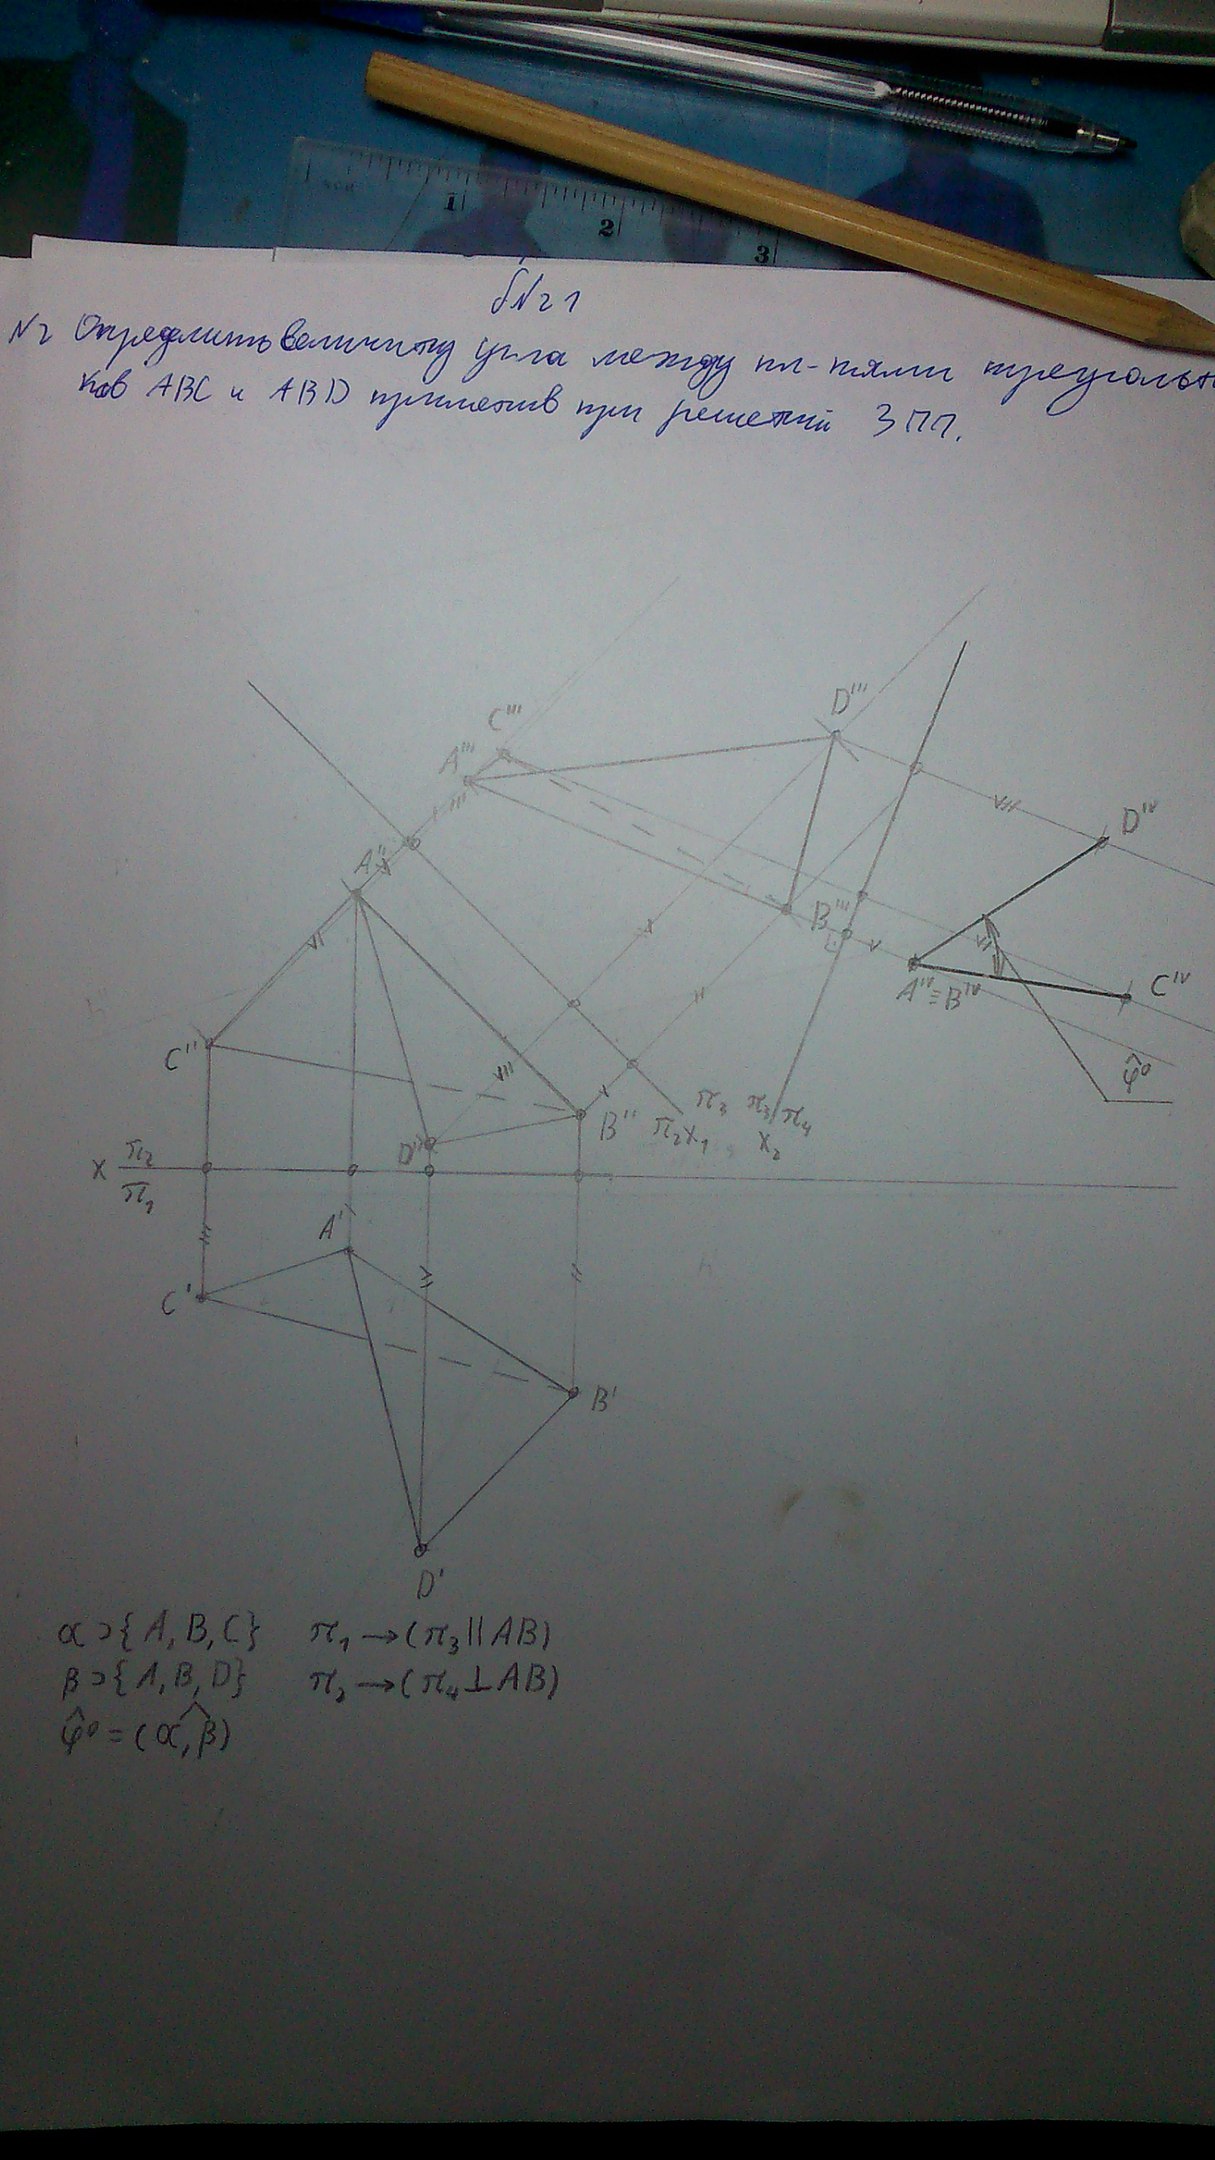 1 2 3
б N2 1
N2 Определить величину угла между пл-тями треугольн
ков ABC и ABD применив при решений ЗПП.
C''' D'''
A'''
D'''' 
A'' B'''
Aᴵⱽ≡Bᴵⱽ Cᴵⱽ
C'' φ̂°
π₃ π₃ π₄
D'' B'' π₂ x₁ x₂
x π₂
π₁
A'
C'
B'
D'
α⊃{A,B,C} π₁→(π₃∥AB)
β⊃{A,B,D} π₂→(π₄⊥AB)
φ̂°=(α,^β)